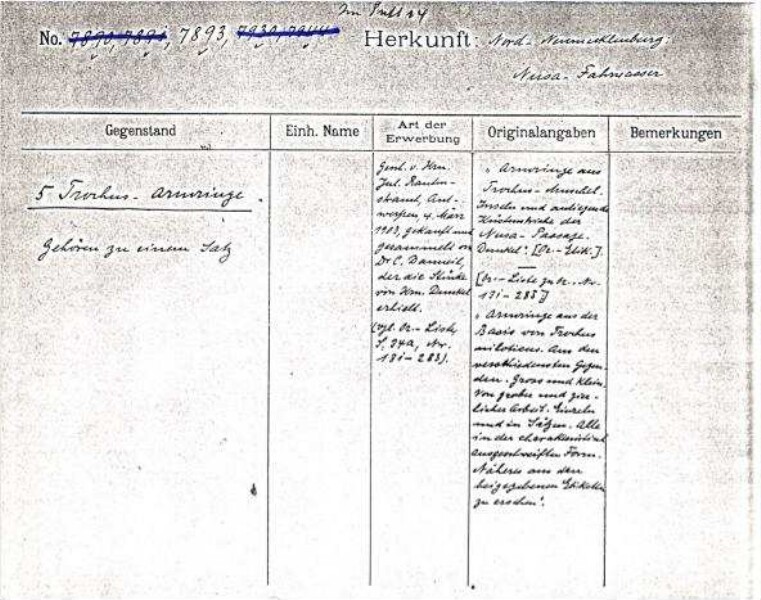 Im Pult 24
No. 7890, 7891, 7893, 7930, 7944 Herkunft: Nord-Neumecklenburg:
Nusa-Fahrwasser
Gegenstand
Einh. Name
Art der
Erwerbung
Originalangaben
Bemerkungen
5 Trochus-Armringe.
Gehören zu einem Satz
Gesch. v. Hrn.
Jul. Rauten-
strauch, Ant-
werpen, 4. März
1903, gekauft und
gesammelt von
Dr C. Danneil,
der die Stücke
von Hrn. Dunkel
erhielt.
(vgl. Or.-Liste,
S. 34a, Nr.
181-283).
„Armringe aus
Trochus-Muschel.
Inseln und anliegende
Küstenstriche der
Nusa-Passage.
Dunkel". [Or.-Etik.].
[Or.-Liste zu Or. Nr.
181-283]
„Armringe aus der
Basis von Trochus
niloticus. Aus den
verschiedensten Gegen-
den. Gross und klein.
Von grober und zier-
licher Arbeit. Einzeln
und in Sätzen. Alle
in der charakteristisch
ausgeschweiften Form.
Näheres aus den
beigegebenen Etiketten
zu ersehen".